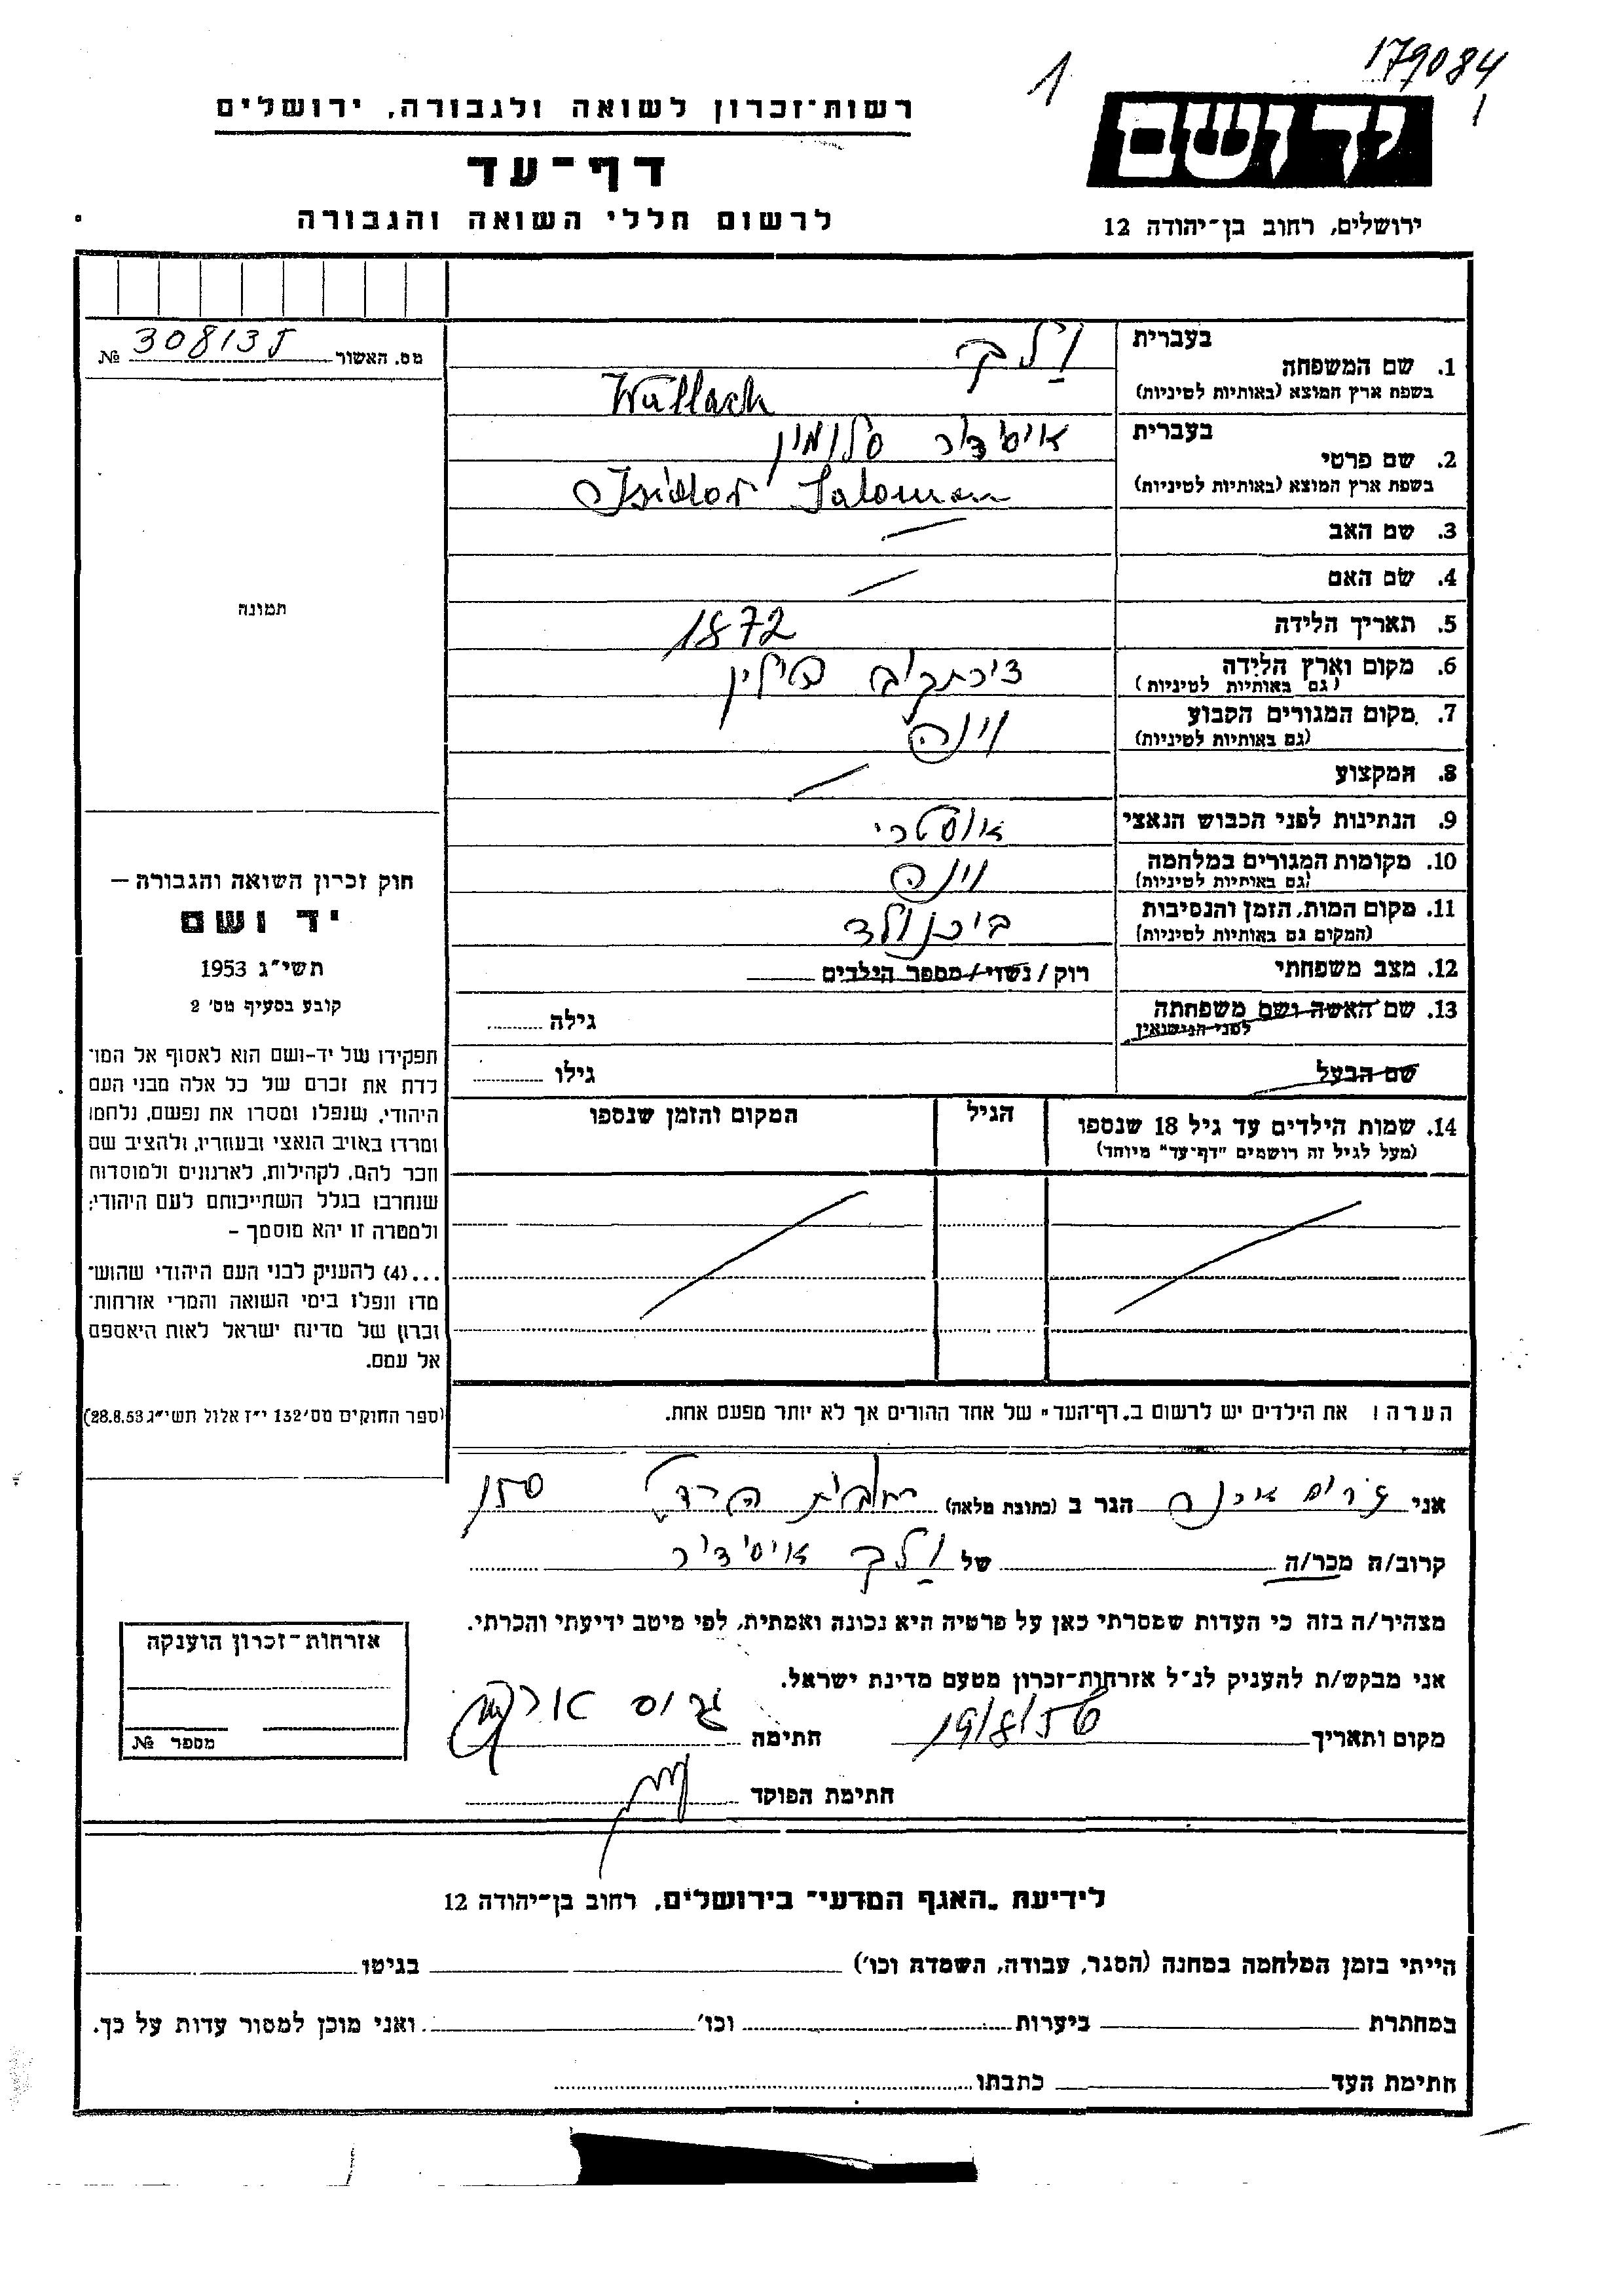 179084
1
1
יד ושם
רשות־זכרון לשואה ולגבורה, ירושלים
דף־עד
לרשום חללי השואה והגבורה
ירושלים, רחוב בן־יהודה 12
מס. האשור 308135 №
בעברית ולך
1. שם המשפחה
בשפת ארץ המוצא (באותיות לטיניות) Wallach
בעברית איסידור סלומון
2. שם פרטי
בשפת ארץ המוצא (באותיות לטיניות) Isidor Salomon
3. שם האב —
4. שם האם —
5. תאריך הלידה 1872
6. מקום וארץ הלידה פולין
(גם באותיות לטיניות)
7. מקום המגורים הקבוע וינה
(גם באותיות לטיניות)
8. המקצוע —
9. הנתינות לפני הכבוש הנאצי אוסטרי
10. מקומות המגורים במלחמה וינה
(גם באותיות לטיניות)
11. מקום המות, הזמן והנסיבות בוכנולד
(המקום גם באותיות לטיניות)
12. מצב משפחתי רוק / נשוי / מספר הילדים
13. שם האשה ושם משפחתה גילה
לפני הנישואין
שם הבעל גילו
14. שמות הילדים עד גיל 18 שנספו הגיל המקום והזמן שנספו
(מעל לגיל זה רושמים "דף־עד" מיוחד)
הערה: את הילדים יש לרשום ב"דף־העד" של אחד ההורים אך לא יותר מפעם אחת.
תמונה
חוק זכרון השואה והגבורה —
יד ושם
תשי"ג 1953
קובע בסעיף מס' 2
תפקידו של יד-ושם הוא לאסוף אל המו־
לדת את זכרם של כל אלה מבני העם
היהודי, שנפלו ומסרו את נפשם, נלחמו
ומרדו באויב הנאצי ובעוזריו, ולהציב שם
וזכר להם, לקהילות, לארגונים ולמוסדות
שנחרבו בגלל השתייכותם לעם היהודי;
ולמטרה זו יהא מוסמך –
...(4) להעניק לבני העם היהודי שהוש־
מדו ונפלו בימי השואה והמרי אזרחות־
זכרון של מדינת ישראל לאות היאספם
אל עמם.
(ספר החוקים מס' 132 י"ז אלול תשי"ג 28.8.53)
אני גרוס ארנה הגר ב (כתובת מלאה) 150
קרוב/ה מכר/ה של ולך איסידור
מצהיר/ה בזה כי העדות שמסרתי כאן על פרטיה היא נכונה ואמתית, לפי מיטב ידיעתי והכרתי.
אני מבקש/ת להעניק לנ"ל אזרחות־זכרון מטעם מדינת ישראל.
מקום ותאריך 19/8/56 חתימה גרוס
חתימת הפוקד
אזרחות־זכרון הוענקה
מספר №
לידיעת "האגף המדעי" בירושלים, רחוב בן־יהודה 12
הייתי בזמן המלחמה במחנה (הסגר, עבודה, השמדה וכו') בגיטו
במחתרת ביערות וכו' ואני מוכן למסור עדות על כך.
חתימת העד כתבתו